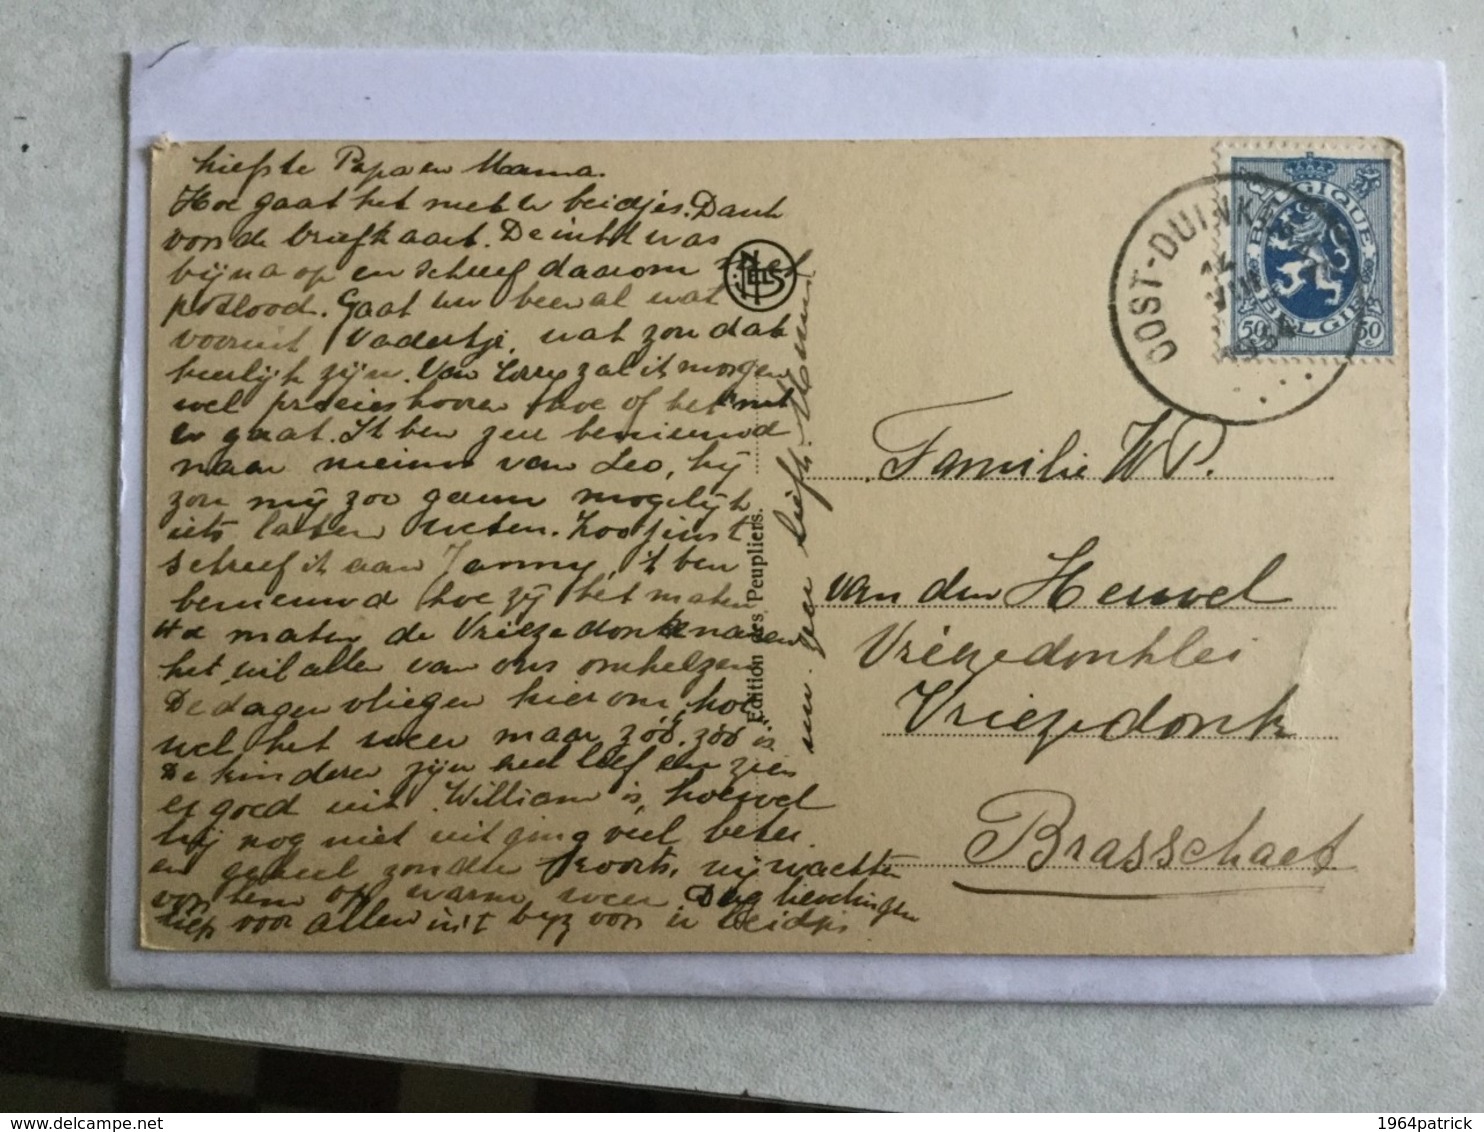 Liefste Papa en Mama.
Hoe gaat het met u beidjes. Dank
voor de briefkaart. De inkt was
bijna op en schreef daarom met
potlood. Gaat uw been al wat
vooruit Vadertje, wat zou dat
heerlijk zijn. Van zal ik morgen
wel precies hooren hoe of het met
er gaat. Ik ben zeer benieuwd
naar nieuws van Leo, hij
zou mij zoo gauw mogelijk
iets laten weten. Zoo juist
schreef ik aan Janny, 'k ben
benieuwd hoe zij het maken
maken de Vriezedonkenaren
het wil allen van ons omhelzen
De dagen vliegen hier om, hoe
wel het weer maar zóó, zóó is
De kinderen zijn heel lief en zien
er goed uit. William is, hoewel
hij nog niet uitging veel beter
en geheel zonder koorts, wij wachten
voor hem op warm weer. Dag lievelingen
liefs voor allen uit bijz voor u beidjes
uw zeer liefh.
NELS
Edition des Peupliers.
OOST-DUINKERKE
14 VIII
BELGIQUE
BELGIË
50 50
Familie W P.
van den Heuvel
Vriezedonklei
Vriezedonk
Brasschaet
1964patrick